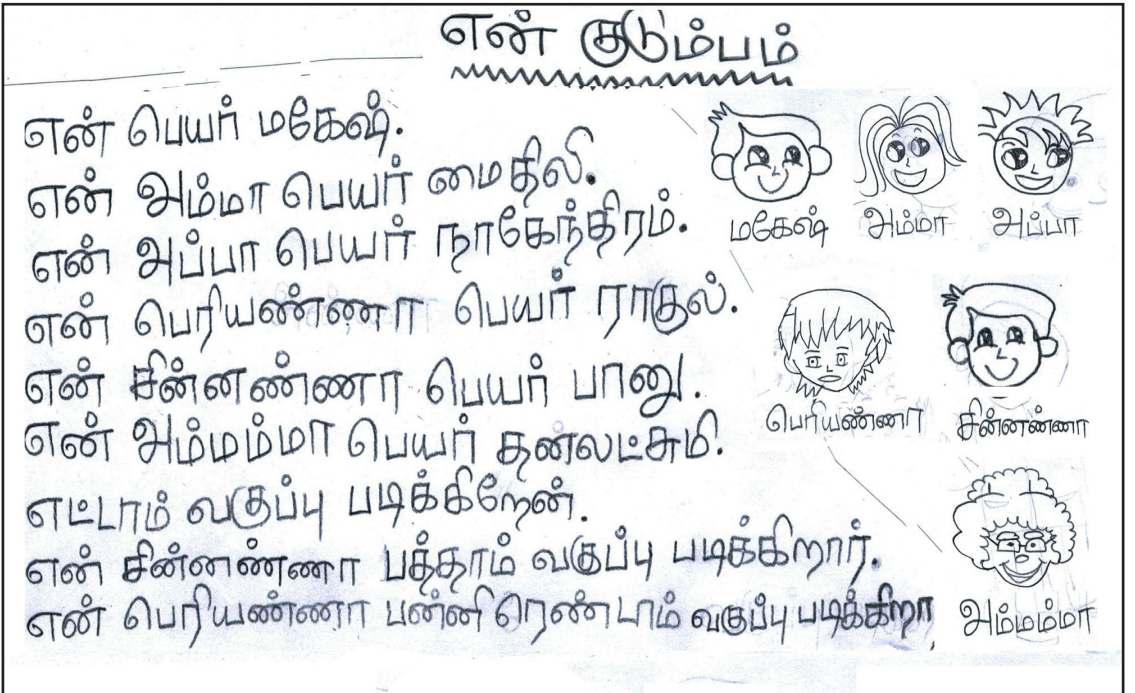 என் குடும்பம்
என் பெயர் மகேஷ்.
என் அம்மா பெயர் மைதிலி.
என் அப்பா பெயர் நாகேந்திரம்.
என் பெரியண்ணா பெயர் ராகுல்.
என் சின்னண்ணா பெயர் பானு.
என் அம்மம்மா பெயர் தனலட்சுமி.
எட்டாம் வகுப்பு படிக்கிறேன்.
என் சின்னண்ணா பத்தாம் வகுப்பு படிக்கிறார்.
என் பெரியண்ணா பன்னிரெண்டாம் வகுப்பு படிக்கிறா
மகேஷ் அம்மா அப்பா
பெரியண்ணா சின்னண்ணா
அம்மம்மா